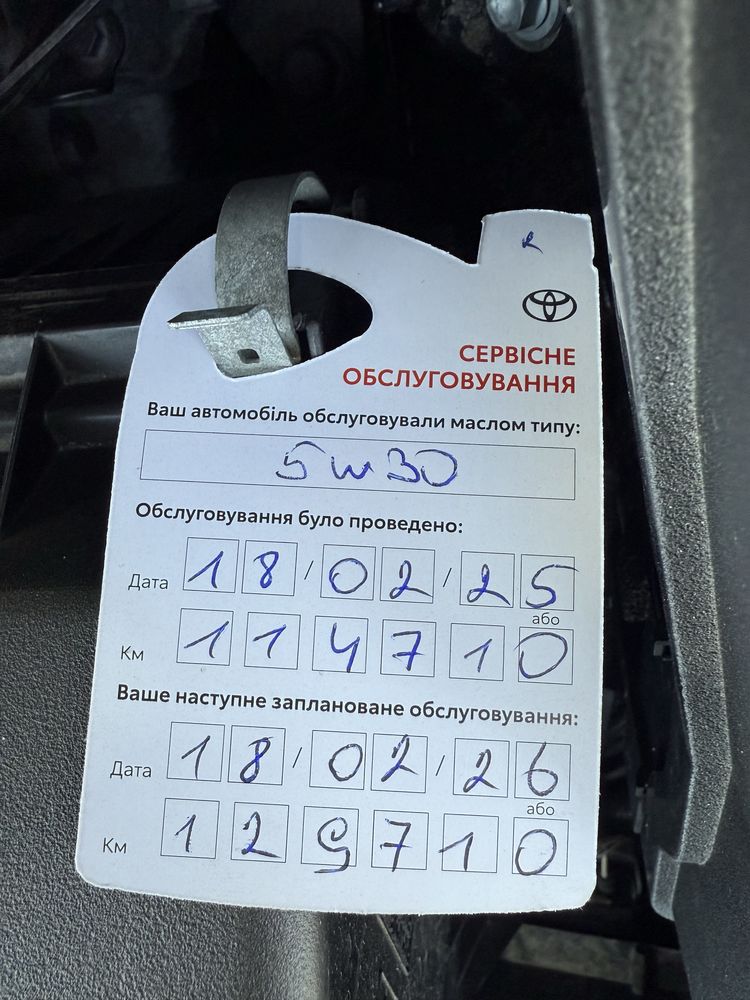 СЕРВІСНЕ
ОБСЛУГОВУВАННЯ
Ваш автомобіль обслуговували маслом типу:
5w30
Обслуговування було проведено:
Дата 18/02/25
або
Км 114710
Ваше наступне заплановане обслуговування:
Дата 18/02/26
або
Км 129710